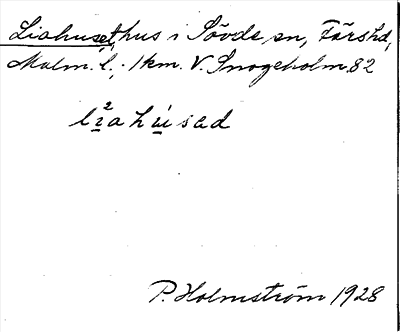 Liahuset, hus i Sövde sn, Färs hd,
Malm. l., 1 km. V. Snogeholm 82
li²ahúsad
P. Holmström 1928